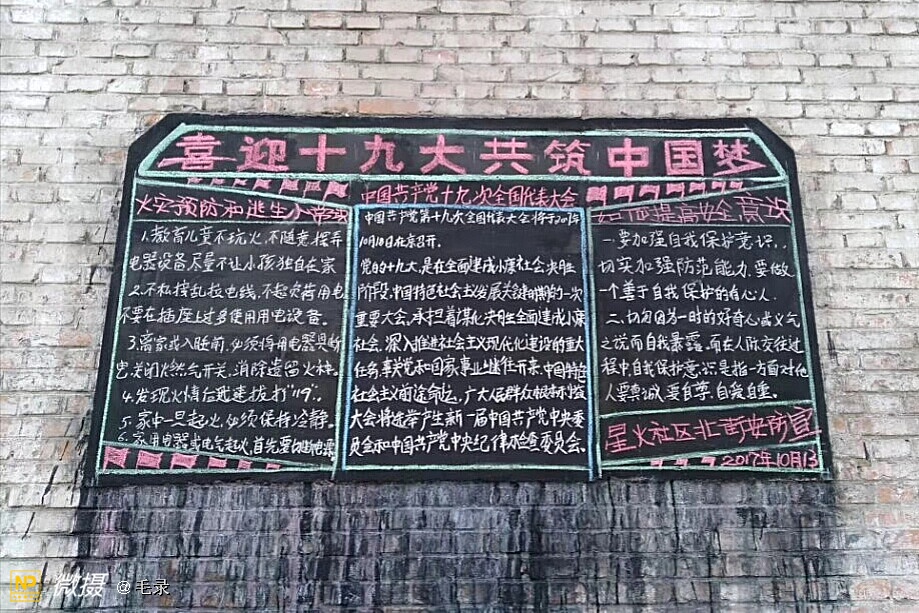 喜迎十九大共筑中国梦
火灾预防和逃生小常识
1.教育儿童不玩火,不随意摆弄
电器设备,尽量不让小孩独自在家
2.不私接乱拉电线,不超负荷用电
不要在插座上过多使用用电设备。
3.离家或入睡前,必须将用电器具断
电关闭燃气开关,消除遗留火种。
4.发现火情后我速拔打"119"。
5.家中一旦起火,必须保持冷静。
6.家用电器或电气起火,首先要切断电源
中国共产党十九次全国代表大会
中国共产党第十九次全国代表大会将于2017年
10月18日在京召开。
党的十九大,是在全面建成小康社会决胜
阶段,中国特色社会主义发展关键时期的一次
重要大会。承担着谋化决胜全面建成小康
社会,深入推进社会主义现代化建设的重大
任务,事关党和国家事业继往开来,中国特色
社会主义前途命运,广大人民群众根本利益
大会将选举产生新一届中国共产党中央委
员会和中国共产党中央纪律检查委员会。
如何提高安全意识
一要加强自我保护意识,
切实加强防范能力,要做
一个善于自我保护的有心人.
二、切勿因为一时的好奇心或义气
之说而自我暴露,而在人际交往过
程中自我保护意识是指一方面对他
人要真诚、要自尊、自爱自重。
星火社区北西安防宣
2017年10月13
微摄 @毛录